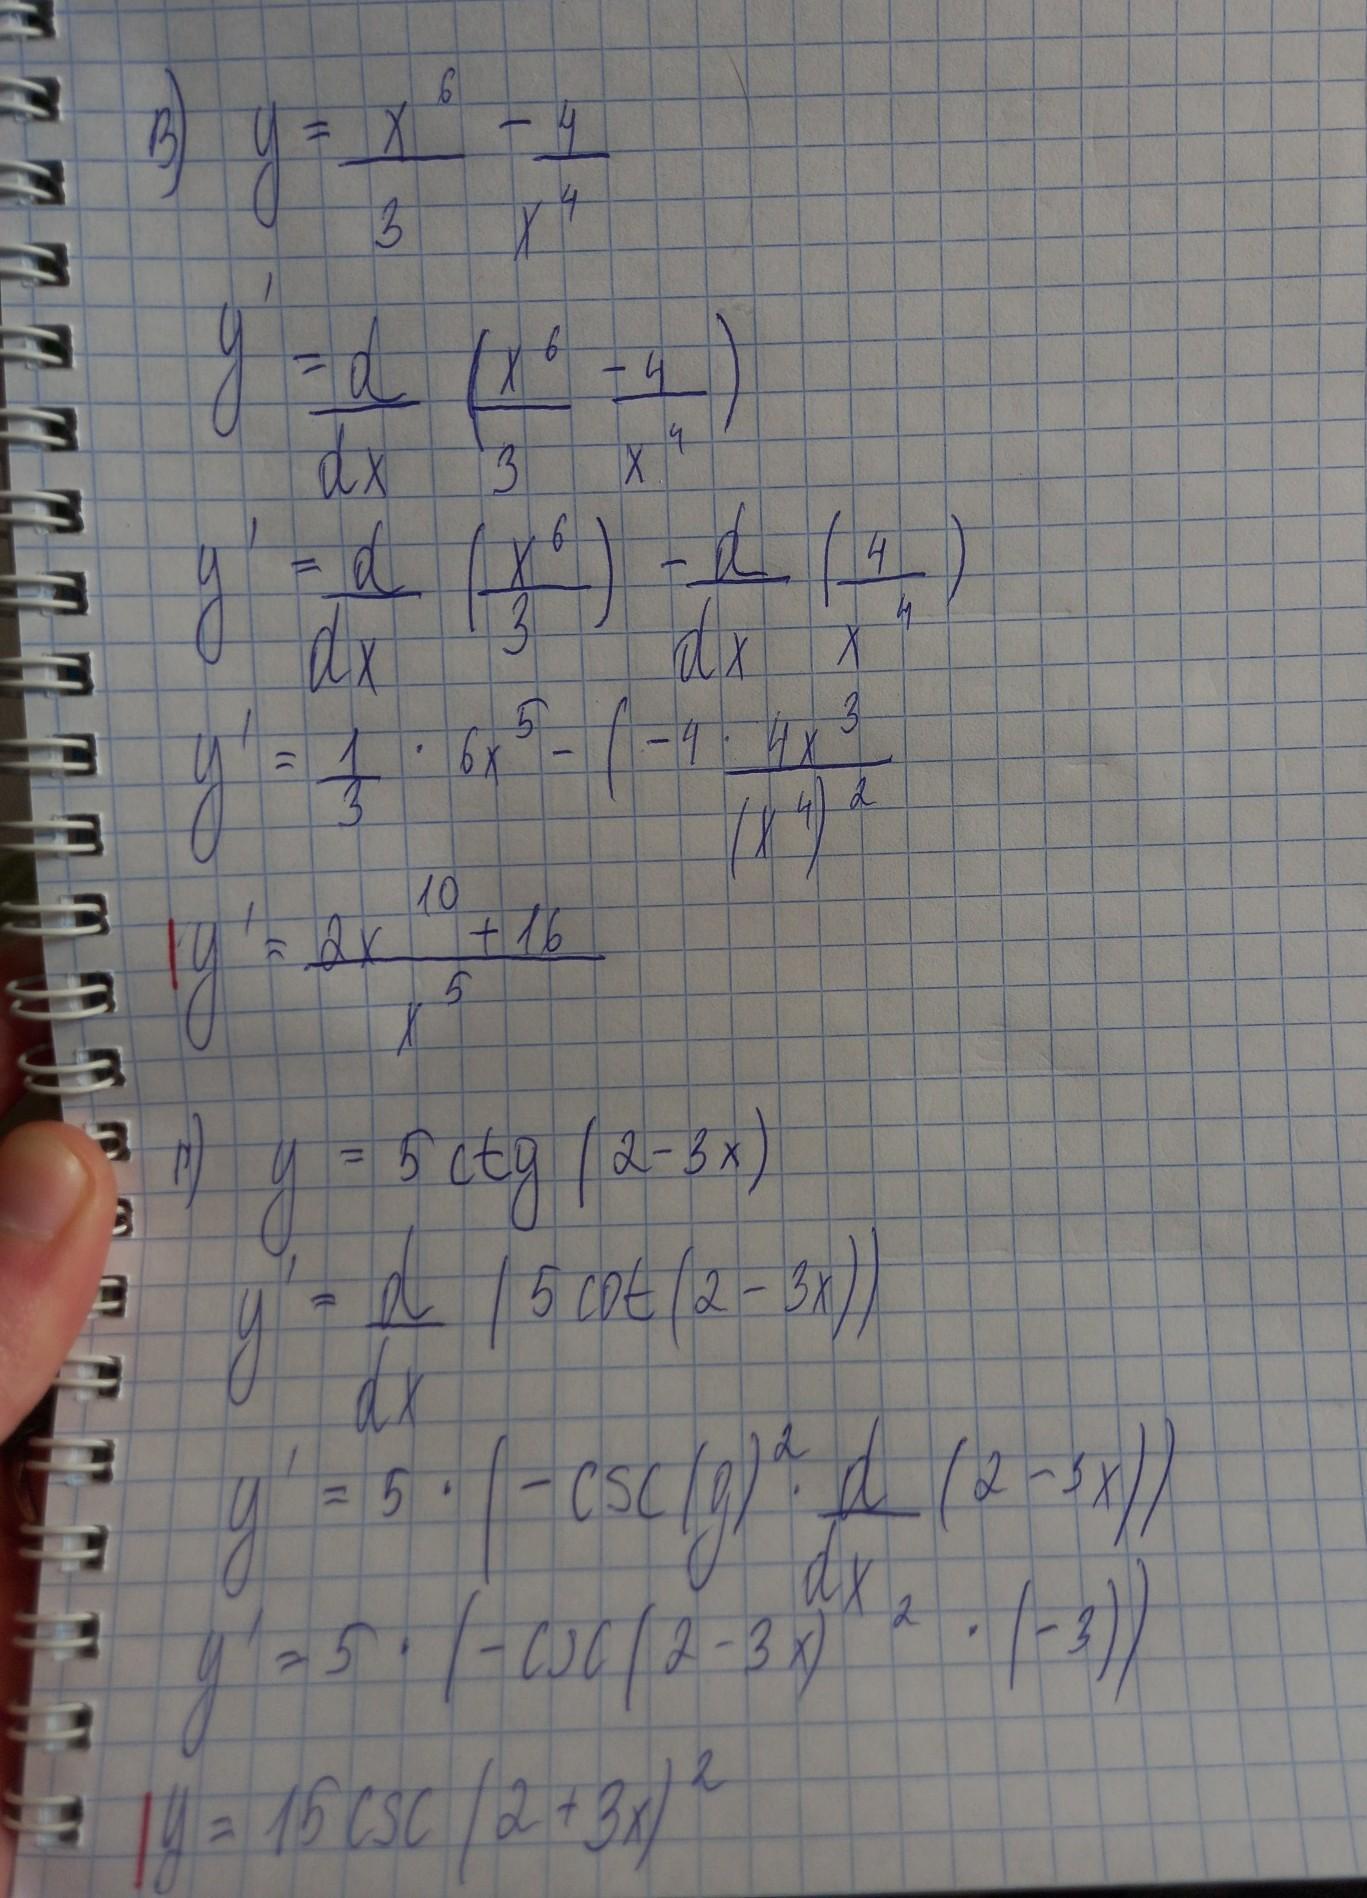 в) y = x^6/3 - 4/x^4
y' = d/dx (x^6/3 - 4/x^4)
y' = d/dx (x^6/3) - d/dx (4/x^4)
y' = 1/3 · 6x^5 - (-4 · 4x^3/(x^4)^2
y' = 2x^10 + 16/x^5
г) y = 5 ctg (2 - 3x)
y' = d/dx (5 cot (2 - 3x))
y' = 5 · (-csc(g)^2 · d/dx (2 - 3x))
y' = 5 · (-csc(2 - 3x)^2 · (-3))
y = 15 csc (2 + 3x)^2